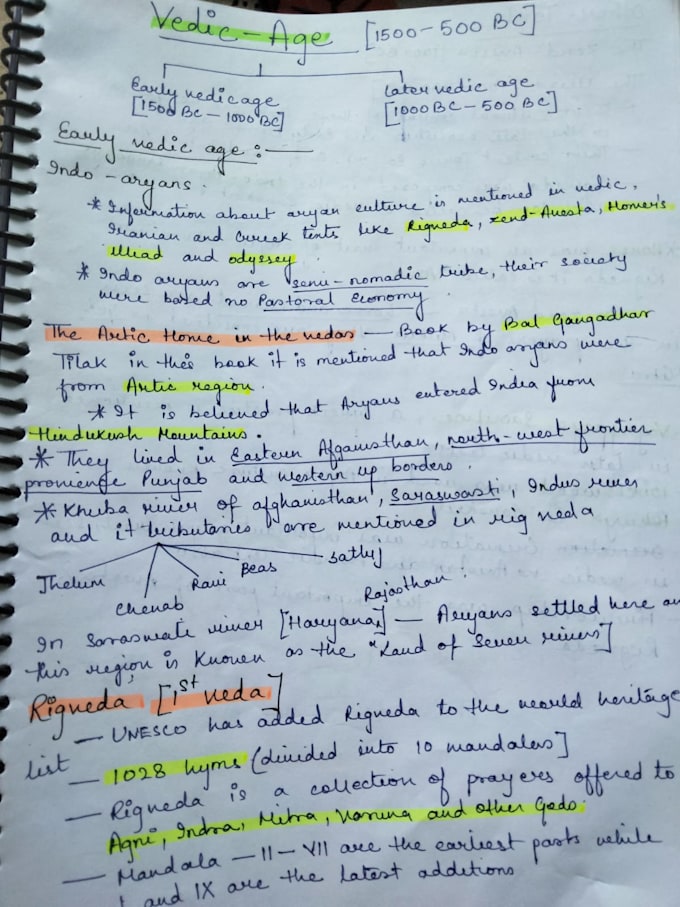 Vedic-Age [1500-500 BC]
Early vedic age Later vedic age
[1500 BC - 1000 BC] [1000 BC - 500 BC]
Early vedic age :-
Indo-aryans.
* Information about aryan culture is mentioned in vedic,
Iranian and Greek texts like Rigveda, zend-Avesta, Homer's
illiad and odyssey
* Indo aryans are semi-nomadic tribe, their society
were based no Pastoral Economy
The Artic Home in the vedas - Book by Bal Gangadhar
Tilak in this book it is mentioned that Indo aryans were
from Artic region.
* It is believed that Aryans entered India from
Hindukush Mountains.
* They lived in Eastern Afganisthan, north-west frontier
provienge Punjab and western up borders.
* Khuba river of afghanisthan, Saraswasti, Indus river
and it tributaries are mentioned in rig veda
Jhelum Chenab Ravi Beas Satluj
Rajasthan
In Saraswati river [Haryana] - Aryans settled here an
this region is Known as the "Land of Seven rivers]
Rigveda [1st veda]
- UNESCO has added Rigveda to the world heritage
list
- 1028 hyms (divided into 10 mandalas]
- Rigveda is a collection of prayers offered to
Agni, Indra, Mitra, Varuna and other Gods.
- Mandala - II - VII are the earliest parts while
and IX are the latest additions